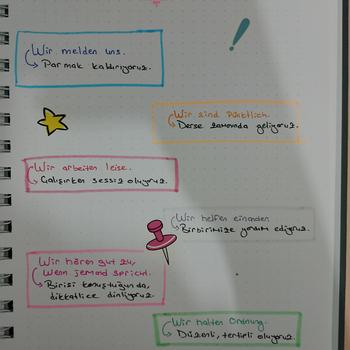 Wir melden uns.
Parmak kaldırıyoruz.
Wir sind Pünktlich.
Derse zamanında geliyoruz.
Wir arbeiten leise.
Çalışırken sessiz oluyoruz.
Wir helfen einander.
Birbirimize yardım ediyoruz.
Wir hören gut zu,
Wenn jemand spricht.
Birisi konuştuğunda,
dikkatlice dinliyoruz.
Wir halten Ordnung.
Düzenli, tertipli oluyoruz.